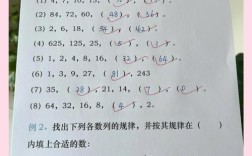 (2) 84, 72, 60, ( 48 ), ( 36 )。
(3) 2, 6, 18, ( 54 ), ( 162 )。
(4) 625, 125, 25, ( 5 ), ( 1 )。
(5) 1, 2, 4, 8, 16, ( 32 ), ( 64 )。
(6) 1, 3, 9, 27, ( 81 ), 243
(7) 35, ( 28 ), 21, 14, ( 7 ), ( 0 )。
(8) 64, 32, 16, 8, ( 4 ), 2.
例 2、找出下列各数列的规律，并按其规律在（ ）
内填上合适的数：